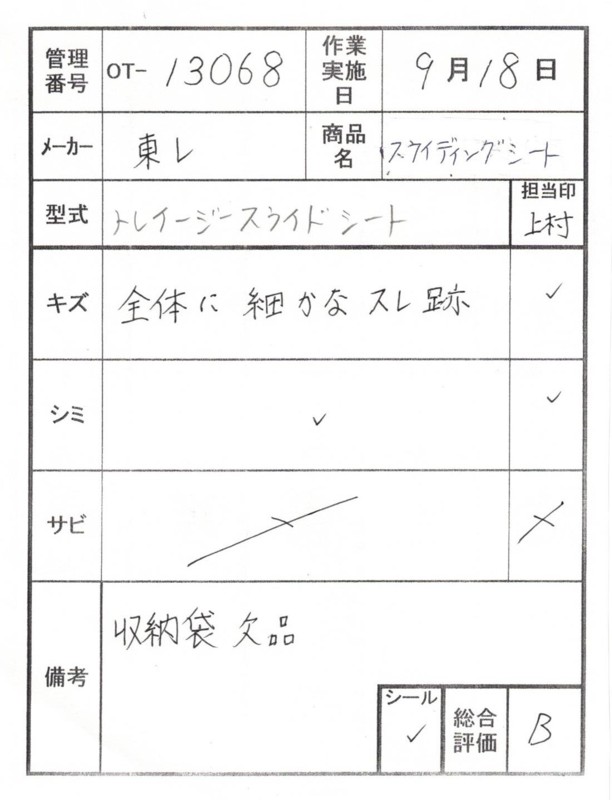 管理番号 OT- 13068 作業実施日 9月18日
メーカー 東レ 商品名 スライディングシート
型式 トレイージースライドシート 担当印 上村
キズ 全体に 細かな スレ跡 ✓
シミ ✓ ✓
サビ
備考 収納袋 欠品
シール ✓ 総合評価 B